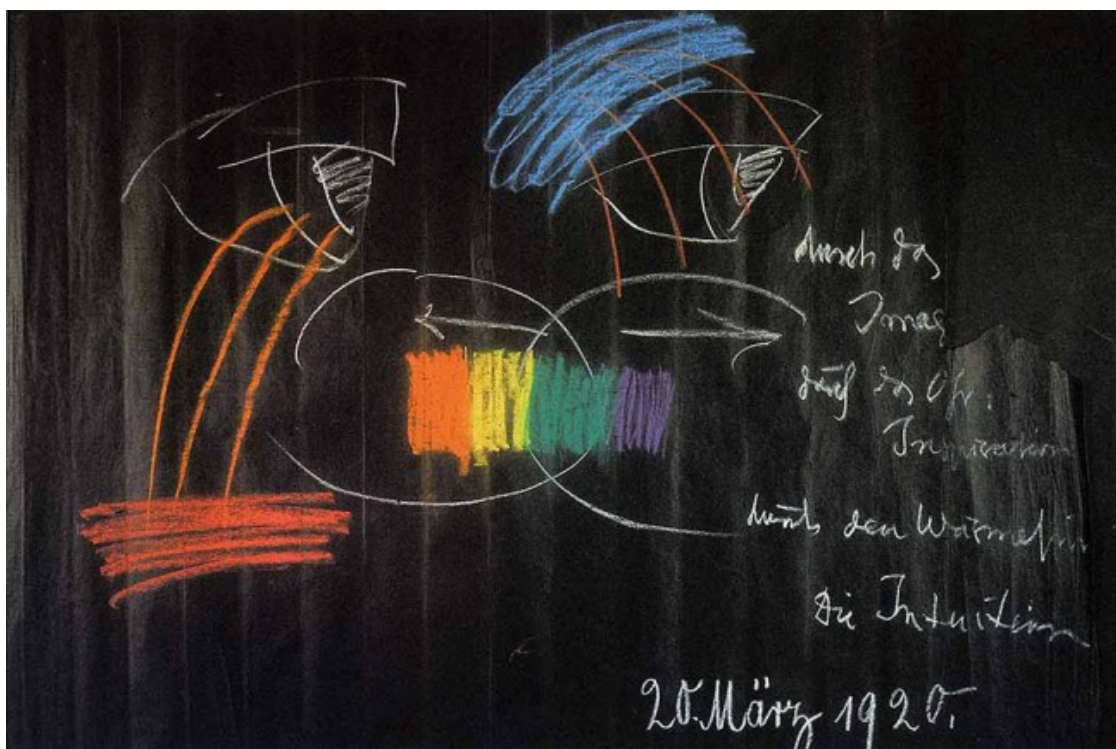 durch das
Imag
durch das Ohr:
Inspiration
durch den Wärmesinn
Die Intuition
20. März 1920.